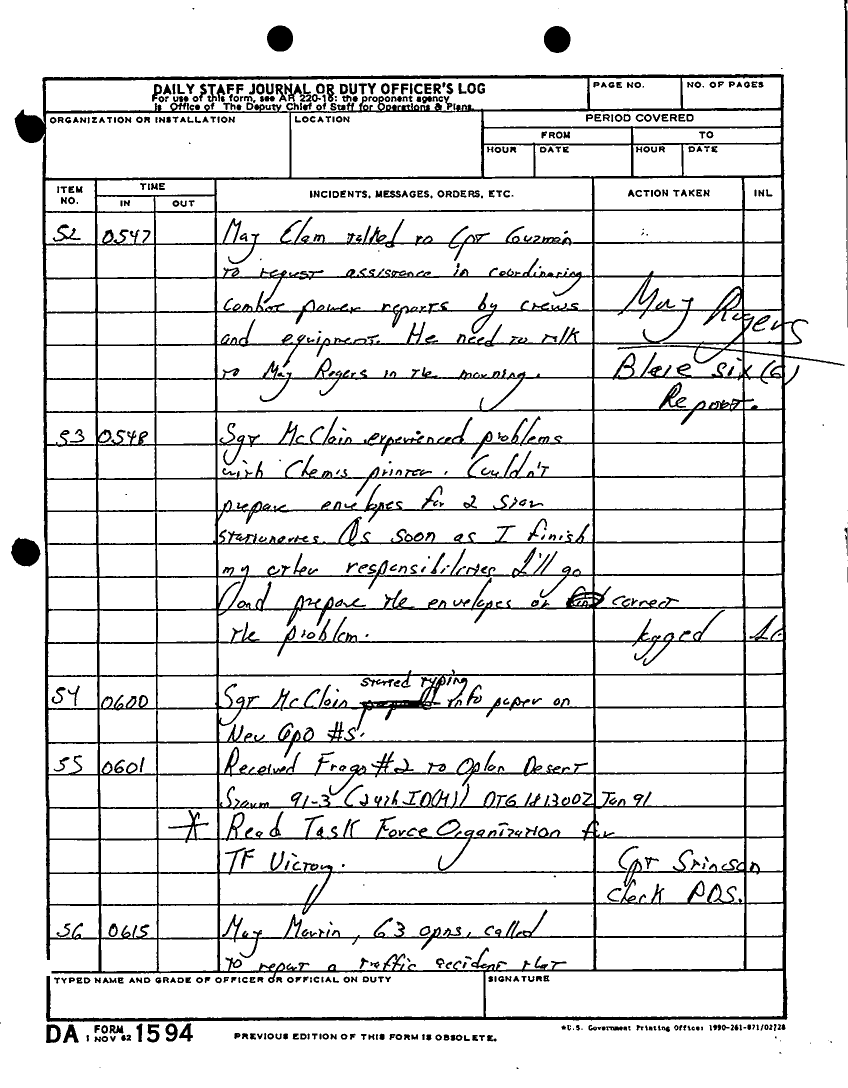 DAILY STAFF JOURNAL OR DUTY OFFICER'S LOG
For use of this form, see AR 220-15: the proponent agency
is Office of The Deputy Chief of Staff for Operations & Plans.
PAGE NO.
NO. OF PAGES
ORGANIZATION OR INSTALLATION
LOCATION
PERIOD COVERED
FROM
TO
HOUR
DATE
HOUR
DATE
ITEM NO.
TIME
IN
OUT
INCIDENTS, MESSAGES, ORDERS, ETC.
ACTION TAKEN
INL
52 0547 Maj Elam talked to Cpt Guzman
to request assistance in coordinating
combat power reports by crews
and equipment. He need to talk
to Maj Rogers in the morning.
Maj Rogers
Blue six (6)
Report.
53 0548 Sgt McClain experienced problems
with Chem's printer. Couldn't
prepare envelopes for 2 star
stationaries. As soon as I finish
my other responsibilities I'll go
and prepare the envelopes or correct
the problem.
logged
54 0600 Sgt McClain started typing info paper on
New OPO #5.
55 0601 Received Frago #2 to Oplan Desert
Storm 91-3 (24th ID(M)) DTG 181300Z Jan 91
* Read Task Force Organization for
TF Victory.
Cpt Stinson
check POS.
56 0615 Maj Mourin, G3 opns, called
to report a traffic accident that
TYPED NAME AND GRADE OF OFFICER OR OFFICIAL ON DUTY
SIGNATURE
DA FORM 1594
1 NOV 62
PREVIOUS EDITION OF THIS FORM IS OBSOLETE.
*U.S. Government Printing Office: 1990-261-871/02728